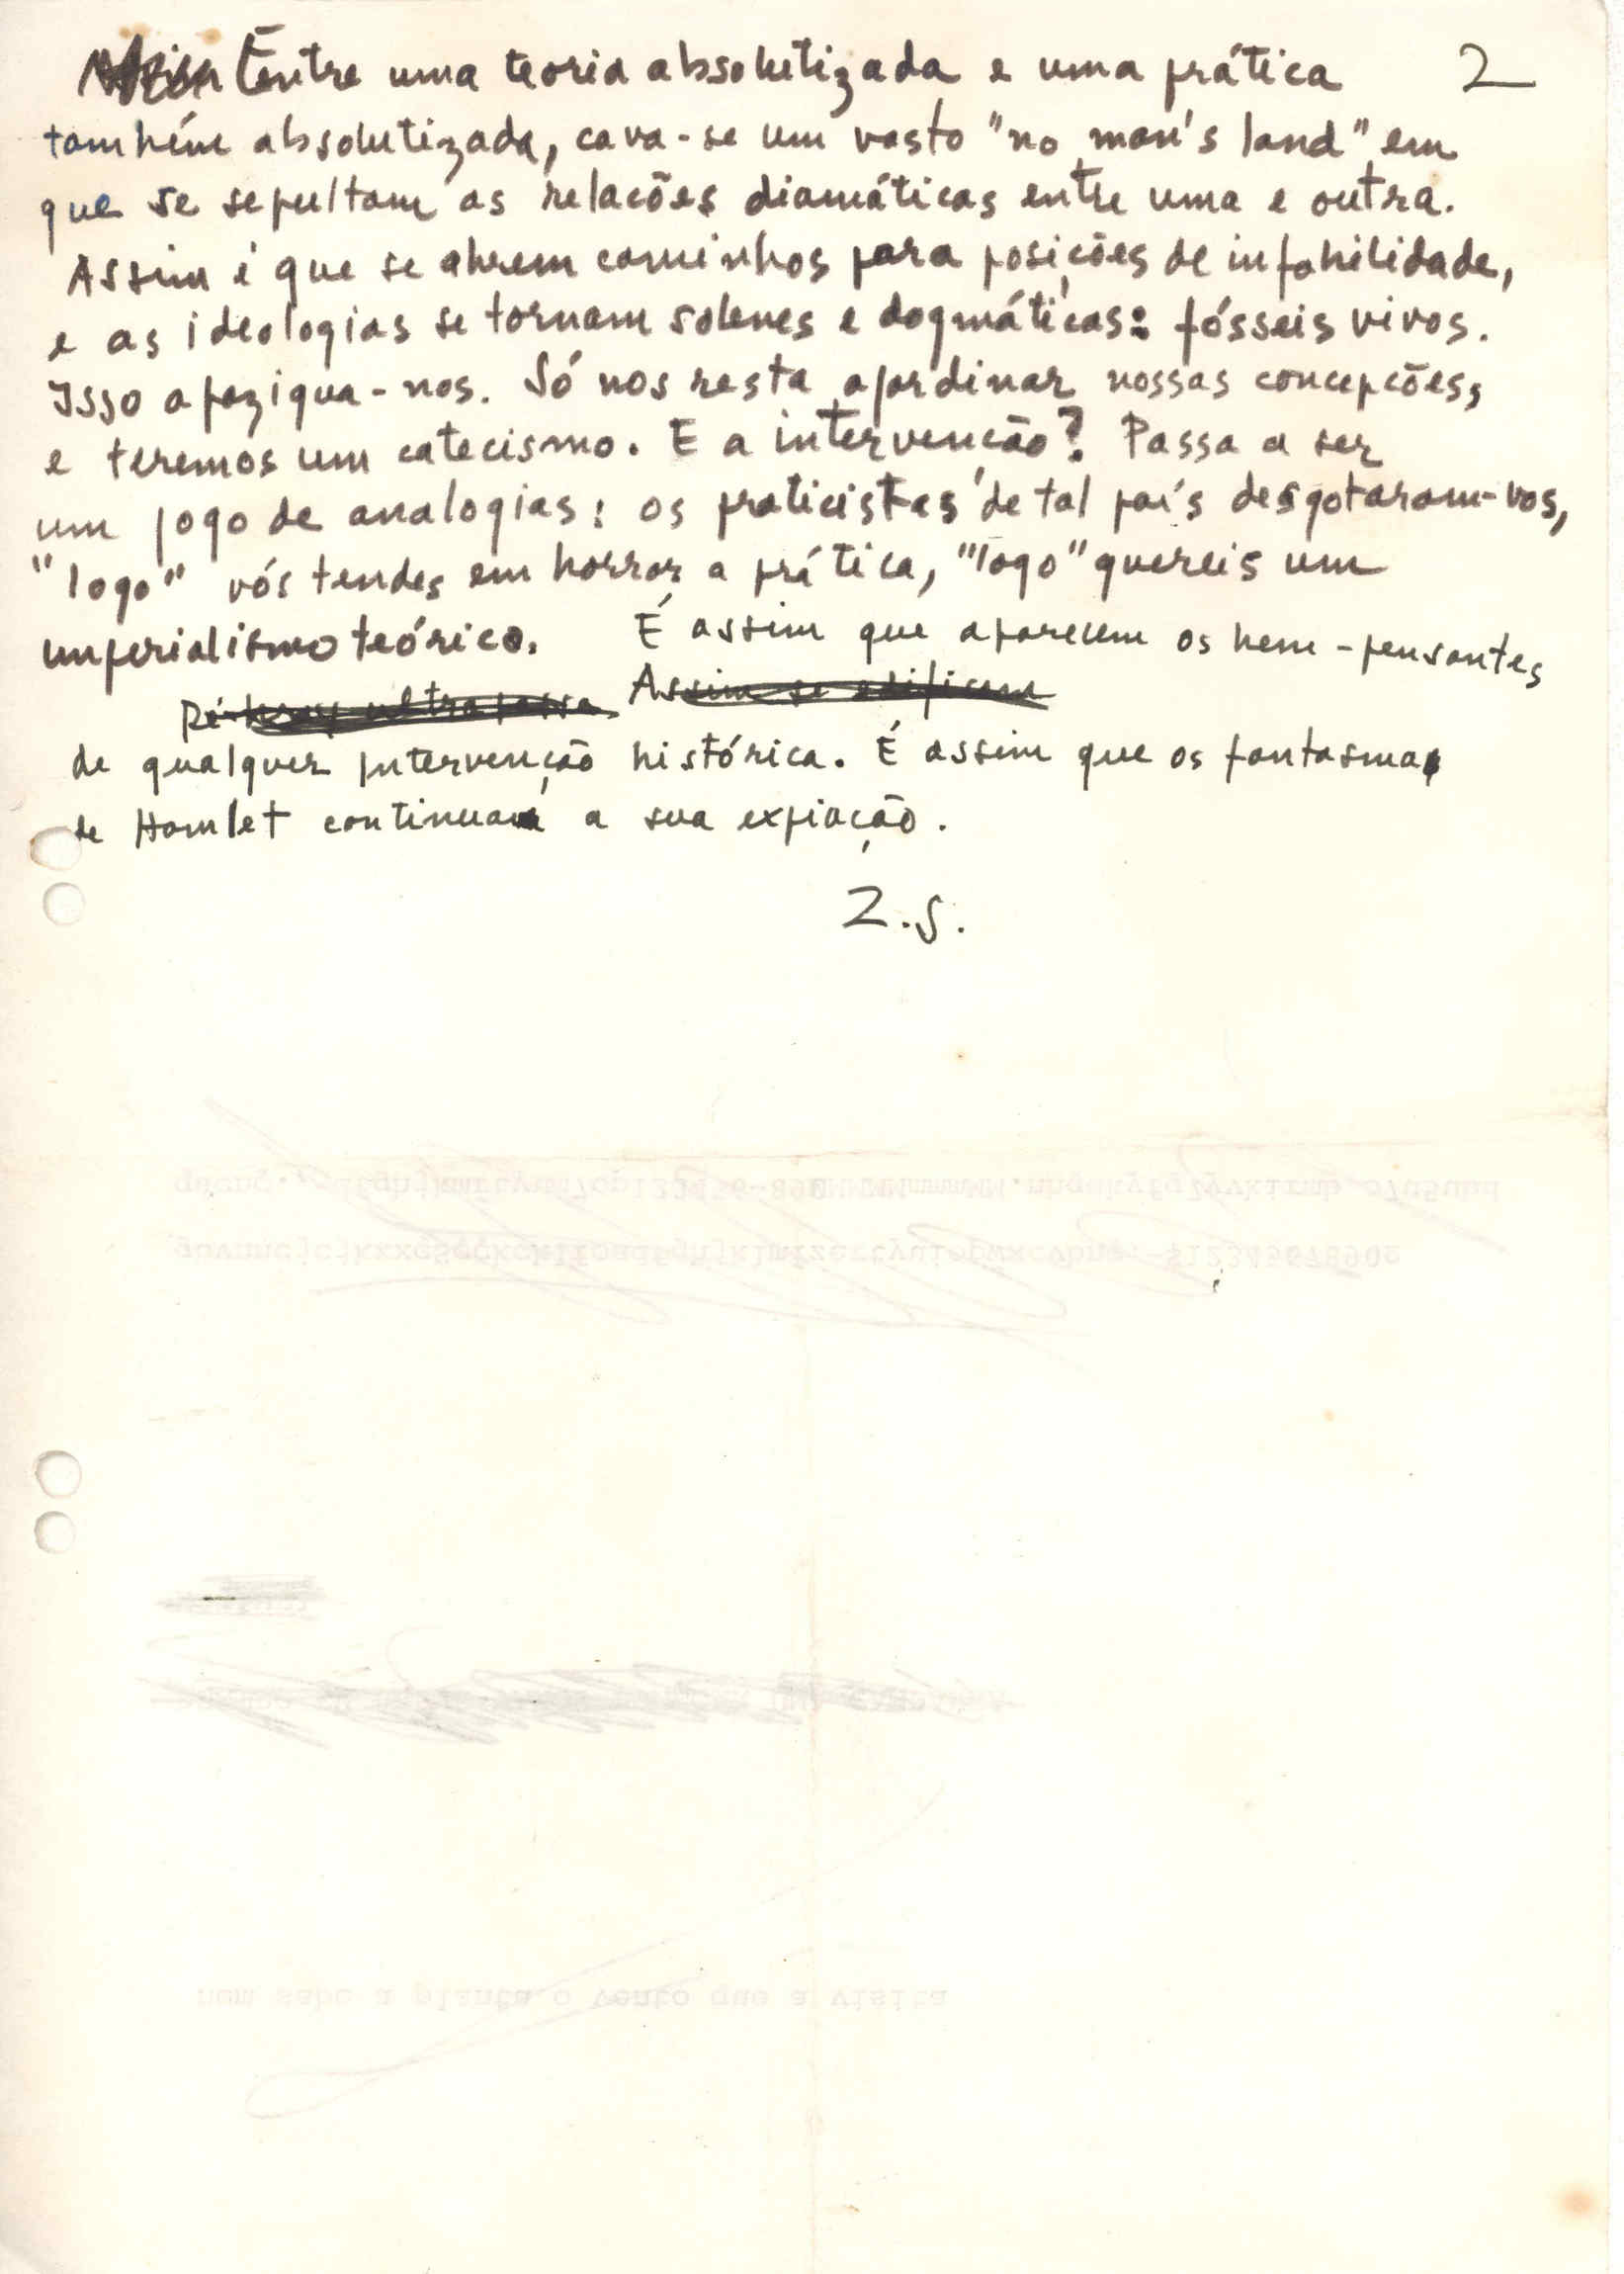 Entre uma teoria absolutizada e uma prática 2
também absolutizada, cava-se um vasto "no man's land" em
que se sepultam as relações diamáticas entre uma e outra.
Assim é que se abrem caminhos para posições de infabilidade,
e as ideologias se tornam solenes e dogmáticas: fósseis vivos.
Isso apazigua-nos. Só nos resta ajardinar nossas concepções,
e teremos um catecismo. E a intervenção? Passa a ser
um jogo de analogias: os praticistas de tal país desgotaram-vos,
"logo" vós tendes em horror a prática, "logo" quereis um
imperialismo teórico. É assim que aparecem os bem-pensantes
Assim se edificam
de qualquer intervenção histórica. É assim que os fantasmas
de Hamlet continuam a sua expiação.
Z.S.
nem sabe a planta o vento que a visita